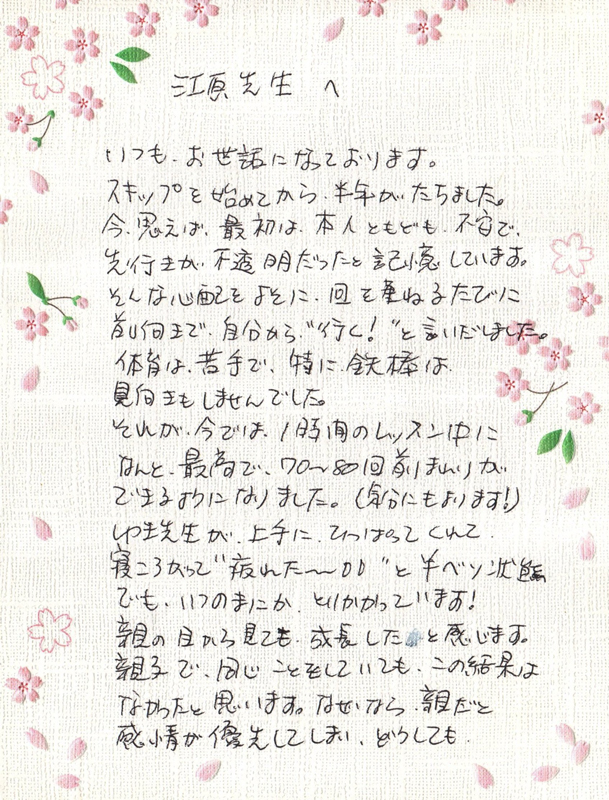 江原先生 へ
いつも、お世話になっております。
スキップを始めてから、半年がたちました。
今、思えば、最初は、本人ともども、不安で、
先行きが、不透明だったと記憶しています。
そんな心配をよそに、回を重ねるたびに
前向きで、自分から、"行く！"と言いだしました。
体育は、苦手で、特に、鉄棒は、
見向きもしませんでした。
それが、今では、1時間のレッスン中に
なんと、最高で、70〜80回前まわりが
できるようになりました。(気分にもよります!)
ゆき先生が、上手に、ひっぱってくれて、
寝ころがって"疲れた〜〜"と半ベソ状態
でも、いつのまにか、とりかかっています!
親の目から見ても、成長したと感じます。
親子で、同じことをしていても、この結果は
なかったと思います。なぜなら、親だと
感情が優先してしまい、どうしても、